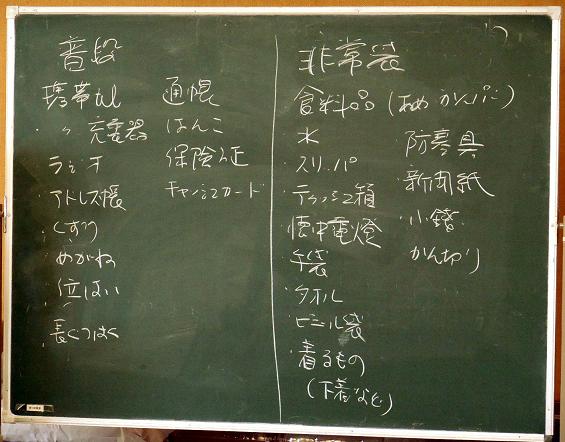 普段
携帯Tel
・〃 充電器
ラジオ
アドレス帳
くすり
めがね
・位はい
・長ぐつはく
通帳
はんこ
保険証
キャッシュカード
非常袋
食料品 (あめ かんパン)
・水
・スリッパ
・ティッシュ箱
懐中電燈
・手袋
・タオル
・ビニール袋
・着るもの
(下着など)
防寒具
・新聞紙
・小銭
かん切り